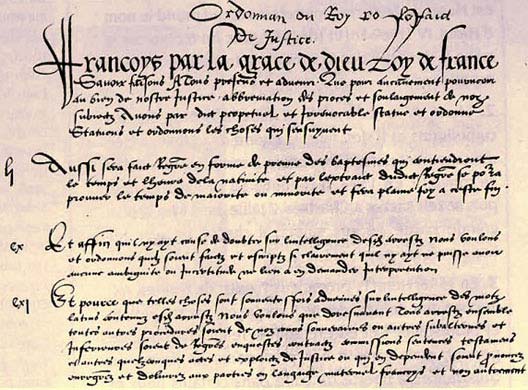 Ordonnan du Roy po le faict
De Justice.
Francoys par la grace de dieu Roy de france
Savoir faisons A tous presens et advenir Que pour aucunement pourveoir
au bien de nostre Justice abbreviation des proces et soulaigement de noz
subiectz Avons par edict perpetuel et irrevocable statue et ordonne
Statuons et ordonnons les choses qui sensuyvent.
Aussi sera faict Regre en forme de preuve des baptesmes qui contiendront
le temps et lheure de la nativite et par lextraict dudict Regre se pora
prouver le temps de maiorite ou minorite et fera plaine foy a ceste fin.
cx Et affin quil ny ayt cause de doubter sur lintelligence desdz arrestz Nous voulons
et ordonnons quilz soient faictz et escriptz si clairement quil ny ayt ne puisse avoir
aucune ambiguite ou Incertitude ne lieu a en demander Interpretation
cxi Et pource que telles choses sont souventesfois advenues sur lintelligence des motz
latins contenuz esdz arrestz Nous voulons que doresnavant Tous arrestz ensemble
toutes autres procedures soient de noz cours souveraines ou autres subalternes et
Inferieures soient de Regres enquestes contractz commissions sentences testamens
et autres quelzconques actes et exploictz de Justice ou qui en dependent soient prononcez
enregrez et delivrez aux parties en langaige maternel francoys et non autrement